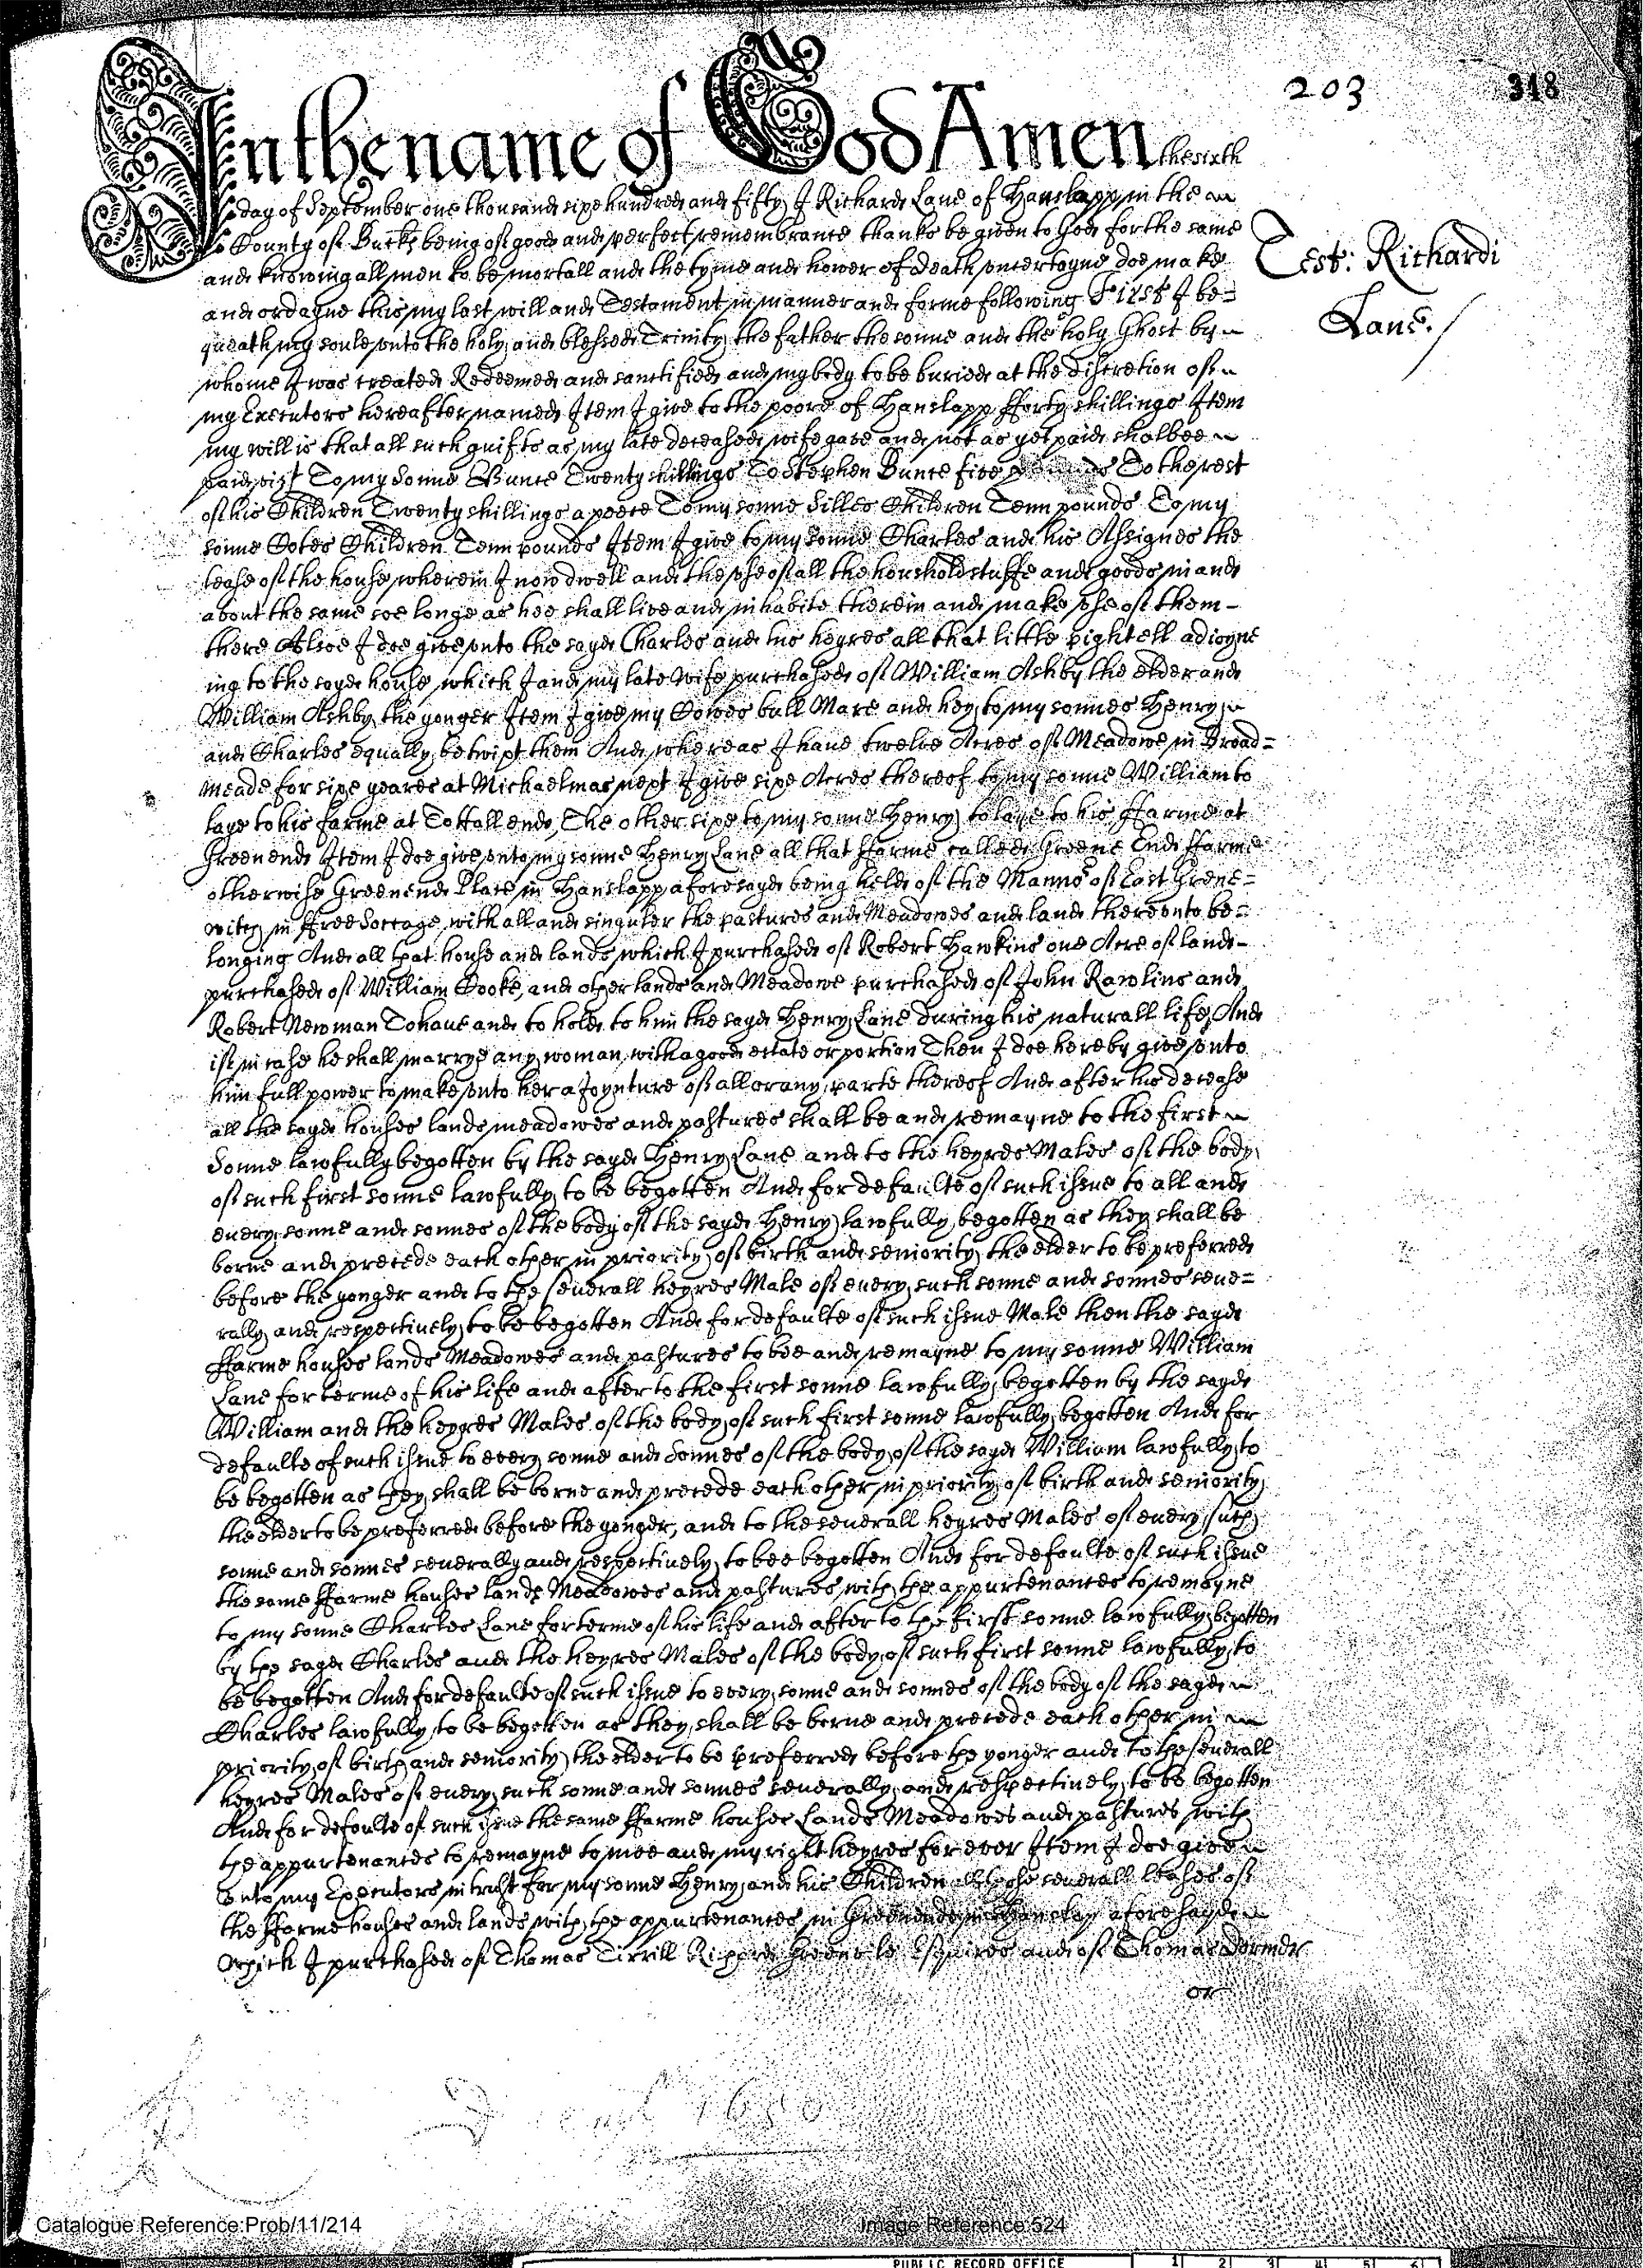 203 318
In the name of God Amen the sixth
day of September one thousand sixe hundred and fifty I Richard Lane of Hanslapp in the
County of Buckes being of good and perfect remembrance thanks be given to God for the same
and knowing all men to be mortall and the tyme and hower of death uncertayne doe make
Test: Richardi
and ordayne this my last will and Testament in manner and forme following First I be=
Lane./
queath my soule unto the holy and blessed Trinity the father the sonne and the holy Ghost by
whome I was created Redeemed and sanctified and my body to be buried at the discretion of
my Executors hereafter named Item I give to the poore of Hanslapp fforty shillings Item
my will is that all such guifts as my late deceased wife gave and not as yet paid shalbee
paid vizt To my Sonne Bunce Twenty shillings To Stephen Bunce five To the rest
of his Children Twenty shillings a peece To my sonne Silles Children Tenn pounds To my
sonne Cotes Children Tenn pounds Item I give to my Sonne Charles and his Assignes the
lease of the house wherein I now dwell and the use of all the housholdstuffe and goods in and
about the same soe longe as hee shall live and inhabite therein and make use of them -
there Alsoe I doe give unto the sayd Charles and his heyres all that little pightell adioyne
ing to the sayd house which I and my late wife purchased of William Ashby the elder and
William Ashby the yonger Item I give my Cowes bull Mare and hey to my sonnes Henry
and Charles equally betwixt them And whereas I have twelve Acres of Meadowe in Broad=
meade for sixe yeares at Michaelmas next I give sixe Acres thereof to my sonne William to
laye to his farme at Tottall ende, The other sixe to my sonne Henry to laye to his ffarme at
Greenend Item I doe give unto my sonne Henry Lane all that ffarme called Greene End ffarme
otherwise Greenend Place in Hanslapp aforesayd being held of the Manno of East Grene=
witch in ffree Soccage with all and singuler the pastures and Meadowes and land thereunto be=
longing And all that house and lands which I purchased of Robert Hawkins one Acre of land -
purchased of William Cooke, and other lands and Meadowe purchased of John Rawlins and
Robert Newman To have and to hold to him the sayd Henry Lane during his naturall life And
if in case he shall marrye any woman with a good estate or portion Then I doe hereby give unto
him full power to make unto her a Joynture of all or any parte thereof And after his decease
all the sayd houses lands meadowes and pastures shall be and remayne to the first
Sonne lawfully begotten by the sayd Henry Lane and to the heyres Males of the body
of such first sonne lawfully to be begotten And for defaulte of such issue to all and
every sonne and sonnes of the body of the sayd Henry lawfully begotten as they shall be
borne and precede each other in priority of birth and seniority the elder to be preferred
before the yonger and to the severall heyres Male of every such sonne and sonnes seve=
rally and respectively to be begotten And for defaulte of such issue Male then the sayd
ffarme houses lands Meadowes and pastures to bee and remayne to my sonne William
Lane for terme of his life and after to the first sonne lawfully begotten by the sayd
William and the heyres Males of the body of such first sonne lawfully begotten And for
defaulte of such issue to every sonne and Sonnes of the body of the sayd William lawfully to
be begotten as they shall be borne and precede each other in priority of birth and seniority
the elder to be preferred before the yonger, and to the severall heyres Males of every such
sonne and sonnes severally and respectively to bee begotten And for defaulte of such issue
the same ffarme houses lands Meadowes and pastures with the appurtenances to remayne
to my sonne Charles Lane for terme of his life and after to the first sonne lawfully begotten
by the sayd Charles and the heyres Males of the body of such first sonne lawfully to
be begotten And for defaulte of such issue to every sonne and sonnes of the body of the sayd
Charles lawfully to be begotten as they shall be borne and precede each other in
priority of birth and seniority the elder to be preferred before the yonger and to the severall
heyres Males of every such sonne and sonnes severally and respectively to be begotten
And for defaulte of such issue the same ffarme houses Lands Meadowes and pastures with
the appurtenances to remayne to mee and my right heyres for ever Item I doe give
unto my Executors in trust for my sonne Henry and his Children all those severall leases of
the fferme houses and lands with the appurtenances in Greenend in Hanslap aforesayd
which I purchased of Thomas Tirrill Richard Esquires and of Thomas Dormer
or
Catalogue Reference:Prob/11/214 Image Reference:524
PUBLIC RECORD OFFICE 1 2 3 4 5 6